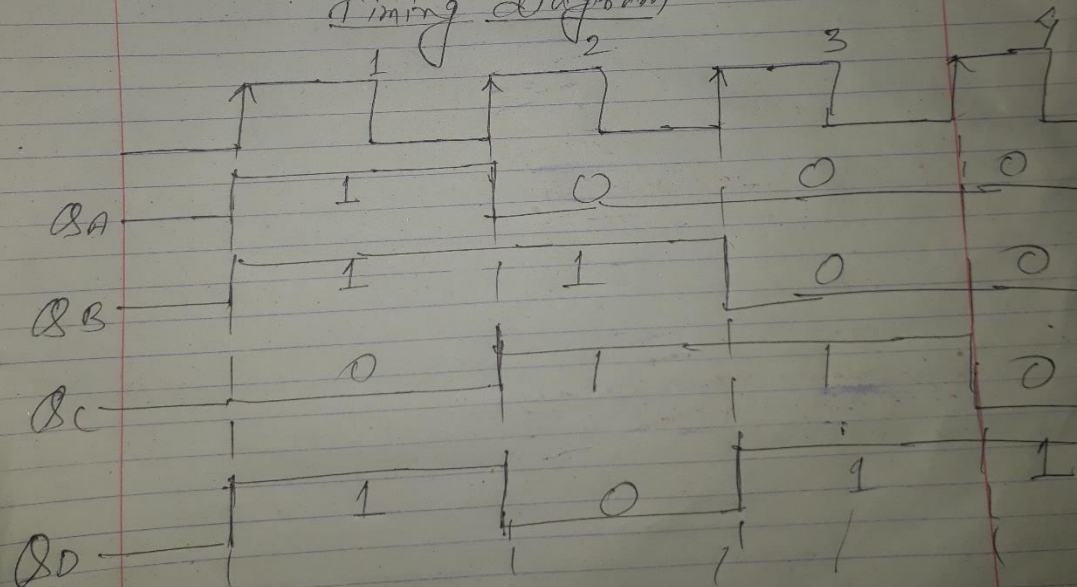 Timing Diagram
1 2 3 4
QA 1 0 0 0
QB 1 1 0 0
QC 0 1 1 0
QD 1 0 1 1